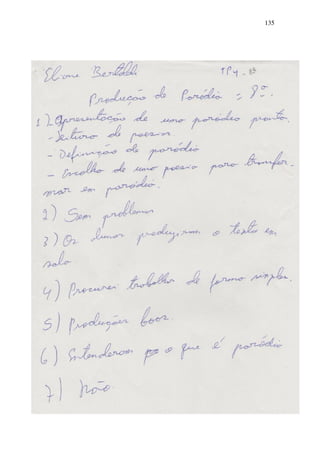 135
Eliane Bertoldi TP4
Produção de Paródia = 8ª.
1) Apresentação de uma paródia pronta.
- Leitura de poesia
- Definição de paródia
- Escolha de uma poesia para transfor-
mar em paródia.
2) Sem problema
3) Os alunos produziram o texto em
sala
4) Procurei trabalhar de forma simples.
5) Produções boas.
6) Entenderam o que é paródia
7) Não.